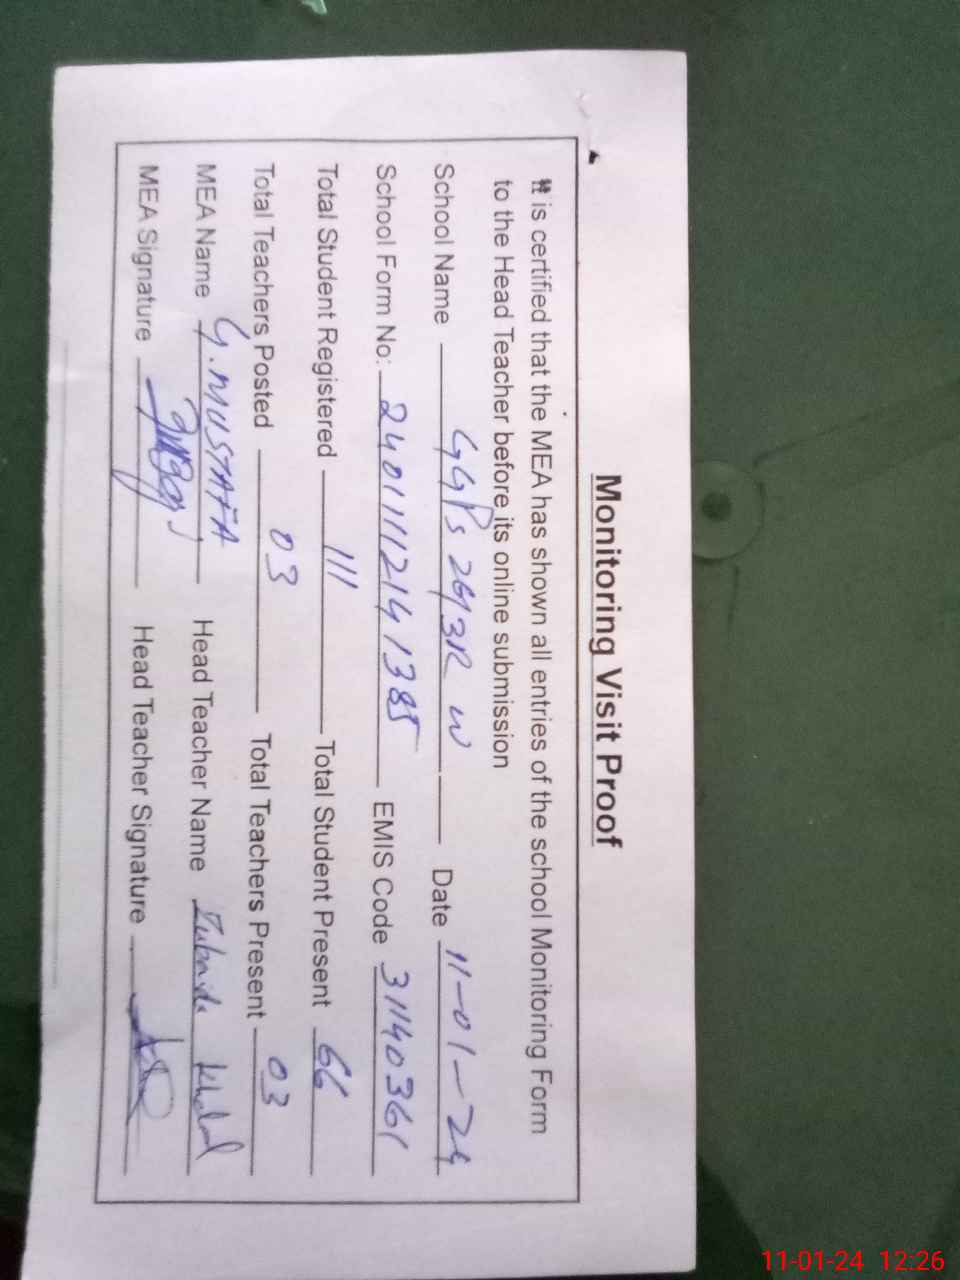 Monitoring Visit Proof
It is certified that the MEA has shown all entries of the school Monitoring Form
to the Head Teacher before its online submission
School Name GGPS 24/3R W Date 11-01-24
School Form No: 24011112141385 EMIS Code 31140361
Total Student Registered 111 Total Student Present 66
Total Teachers Posted 03 Total Teachers Present 03
MEA Name G.MUSTAFA Head Teacher Name Zubaida Khalid
MEA Signature Head Teacher Signature
11-01-24 12:26